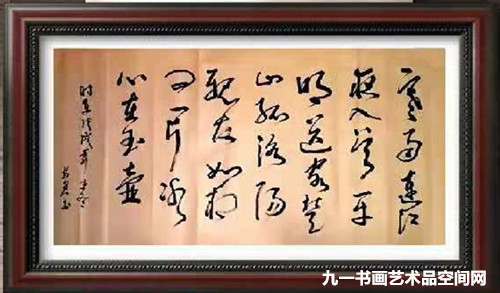 寒雨連江
夜入吴平
明送客楚
山孤洛陽
親友如相
问一片冰
心在玉壶
九一书画艺术品空间网